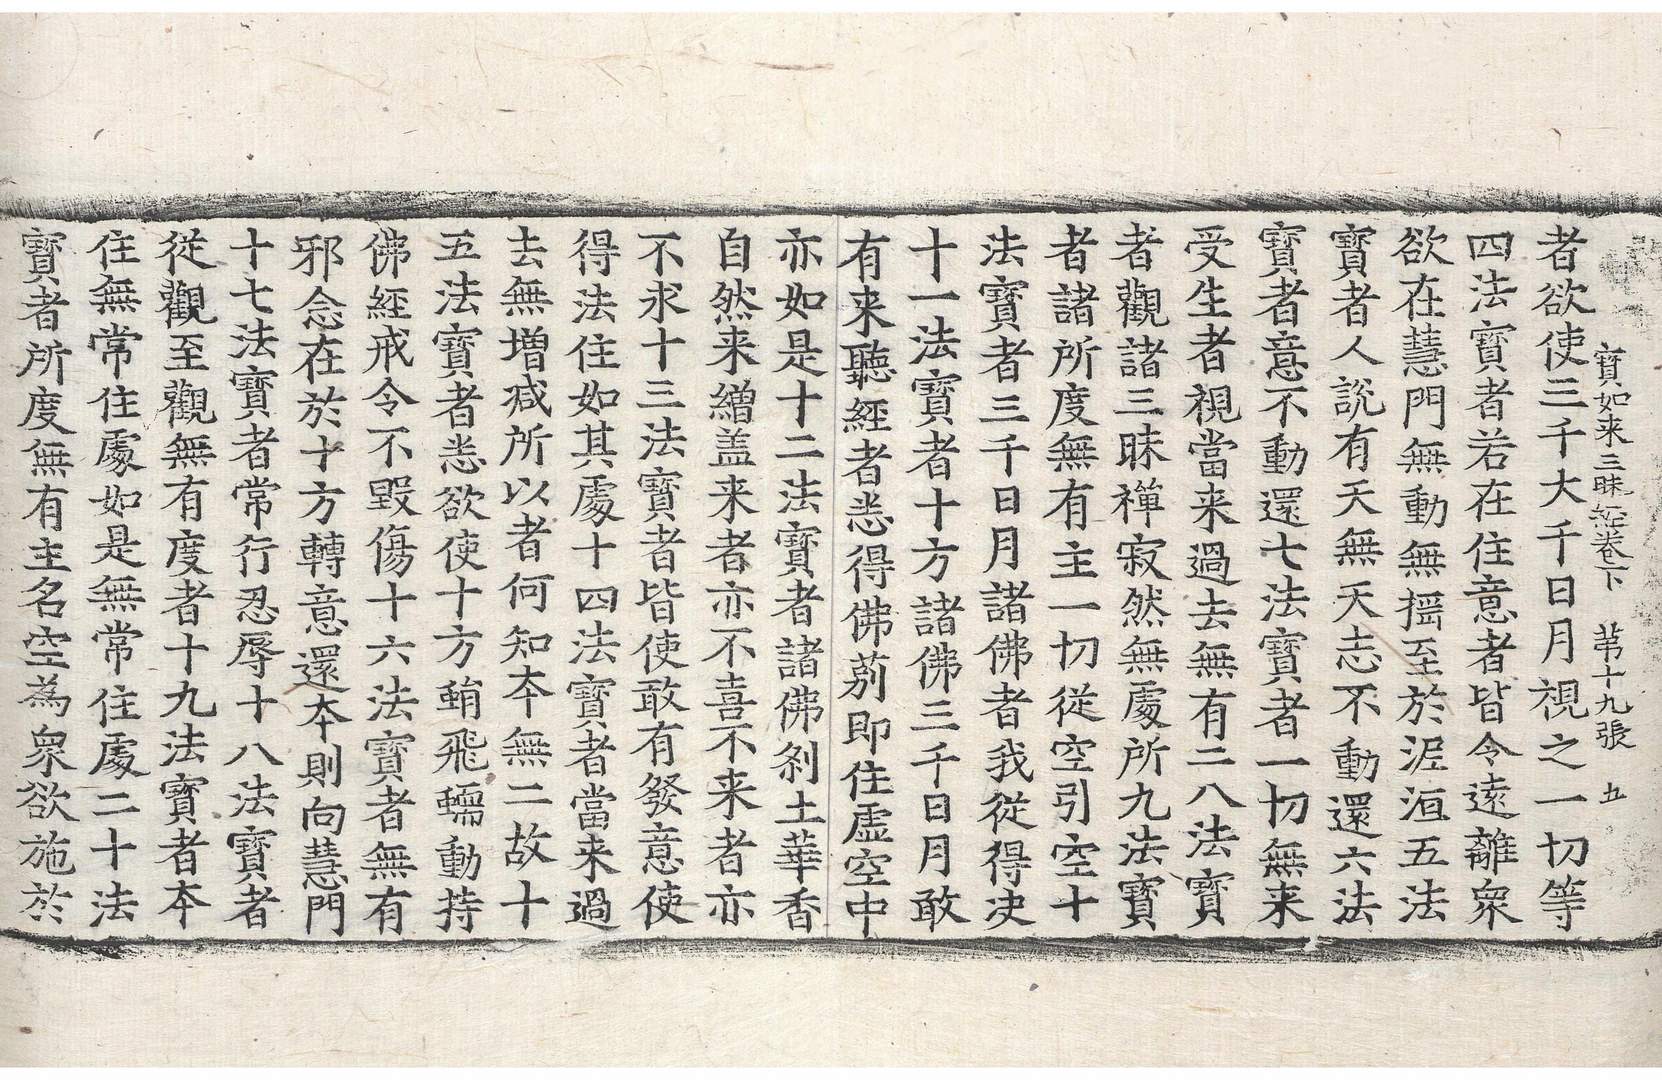 寶如来三昧經卷下　苐十九張　五
者欲使三千大千日月視之一切等
四法寶者若在住意者皆令遠離衆
欲在慧門無動無揺至於泥洹五法
寶者人說有天無天志不動還六法
寶者意不動還七法寶者一切無来
受生者視當来過去無有二八法寶
者觀諸三昧禪寂然無處所九法寶
者諸所度無有主一切従空引空十
法寶者三千日月諸佛者我従得决
十一法寶者十方諸佛三千日月敢
有来聽經者悉得佛莂即住虛空中
亦如是十二法寶者諸佛剎土華香
自然来繒盖来者亦不喜不来者亦
不求十三法寶者皆使敢有發意使
得法住如其處十四法寶者當来過
去無增减所以者何知本無二故十
五法寶者悉欲使十方蜎飛蠕動持
佛經戒令不毀傷十六法寶者無有
邪念在於十方轉意還本則向慧門
十七法寶者常行忍辱十八法寶者
従觀至觀無有度者十九法寶者本
住無常住處如是無常住處二十法
寶者所度無有主名空為衆欲施於